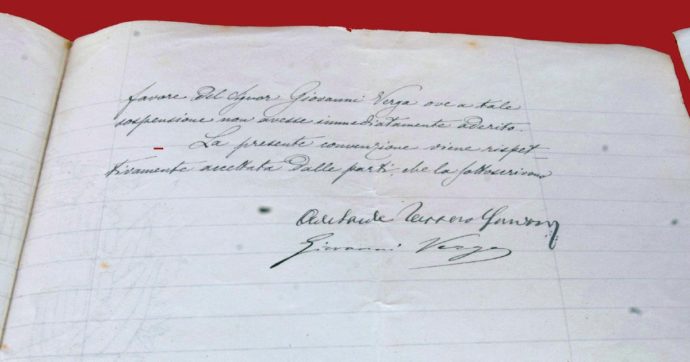 favore del Signor Giovanni Verga ove a tale
sospensione non avesse immediatamente aderito.
La presente convenzione viene rispet-
tivamente accettata dalle parti, che la sottoscrivono
Adelaide
Giovanni Verga